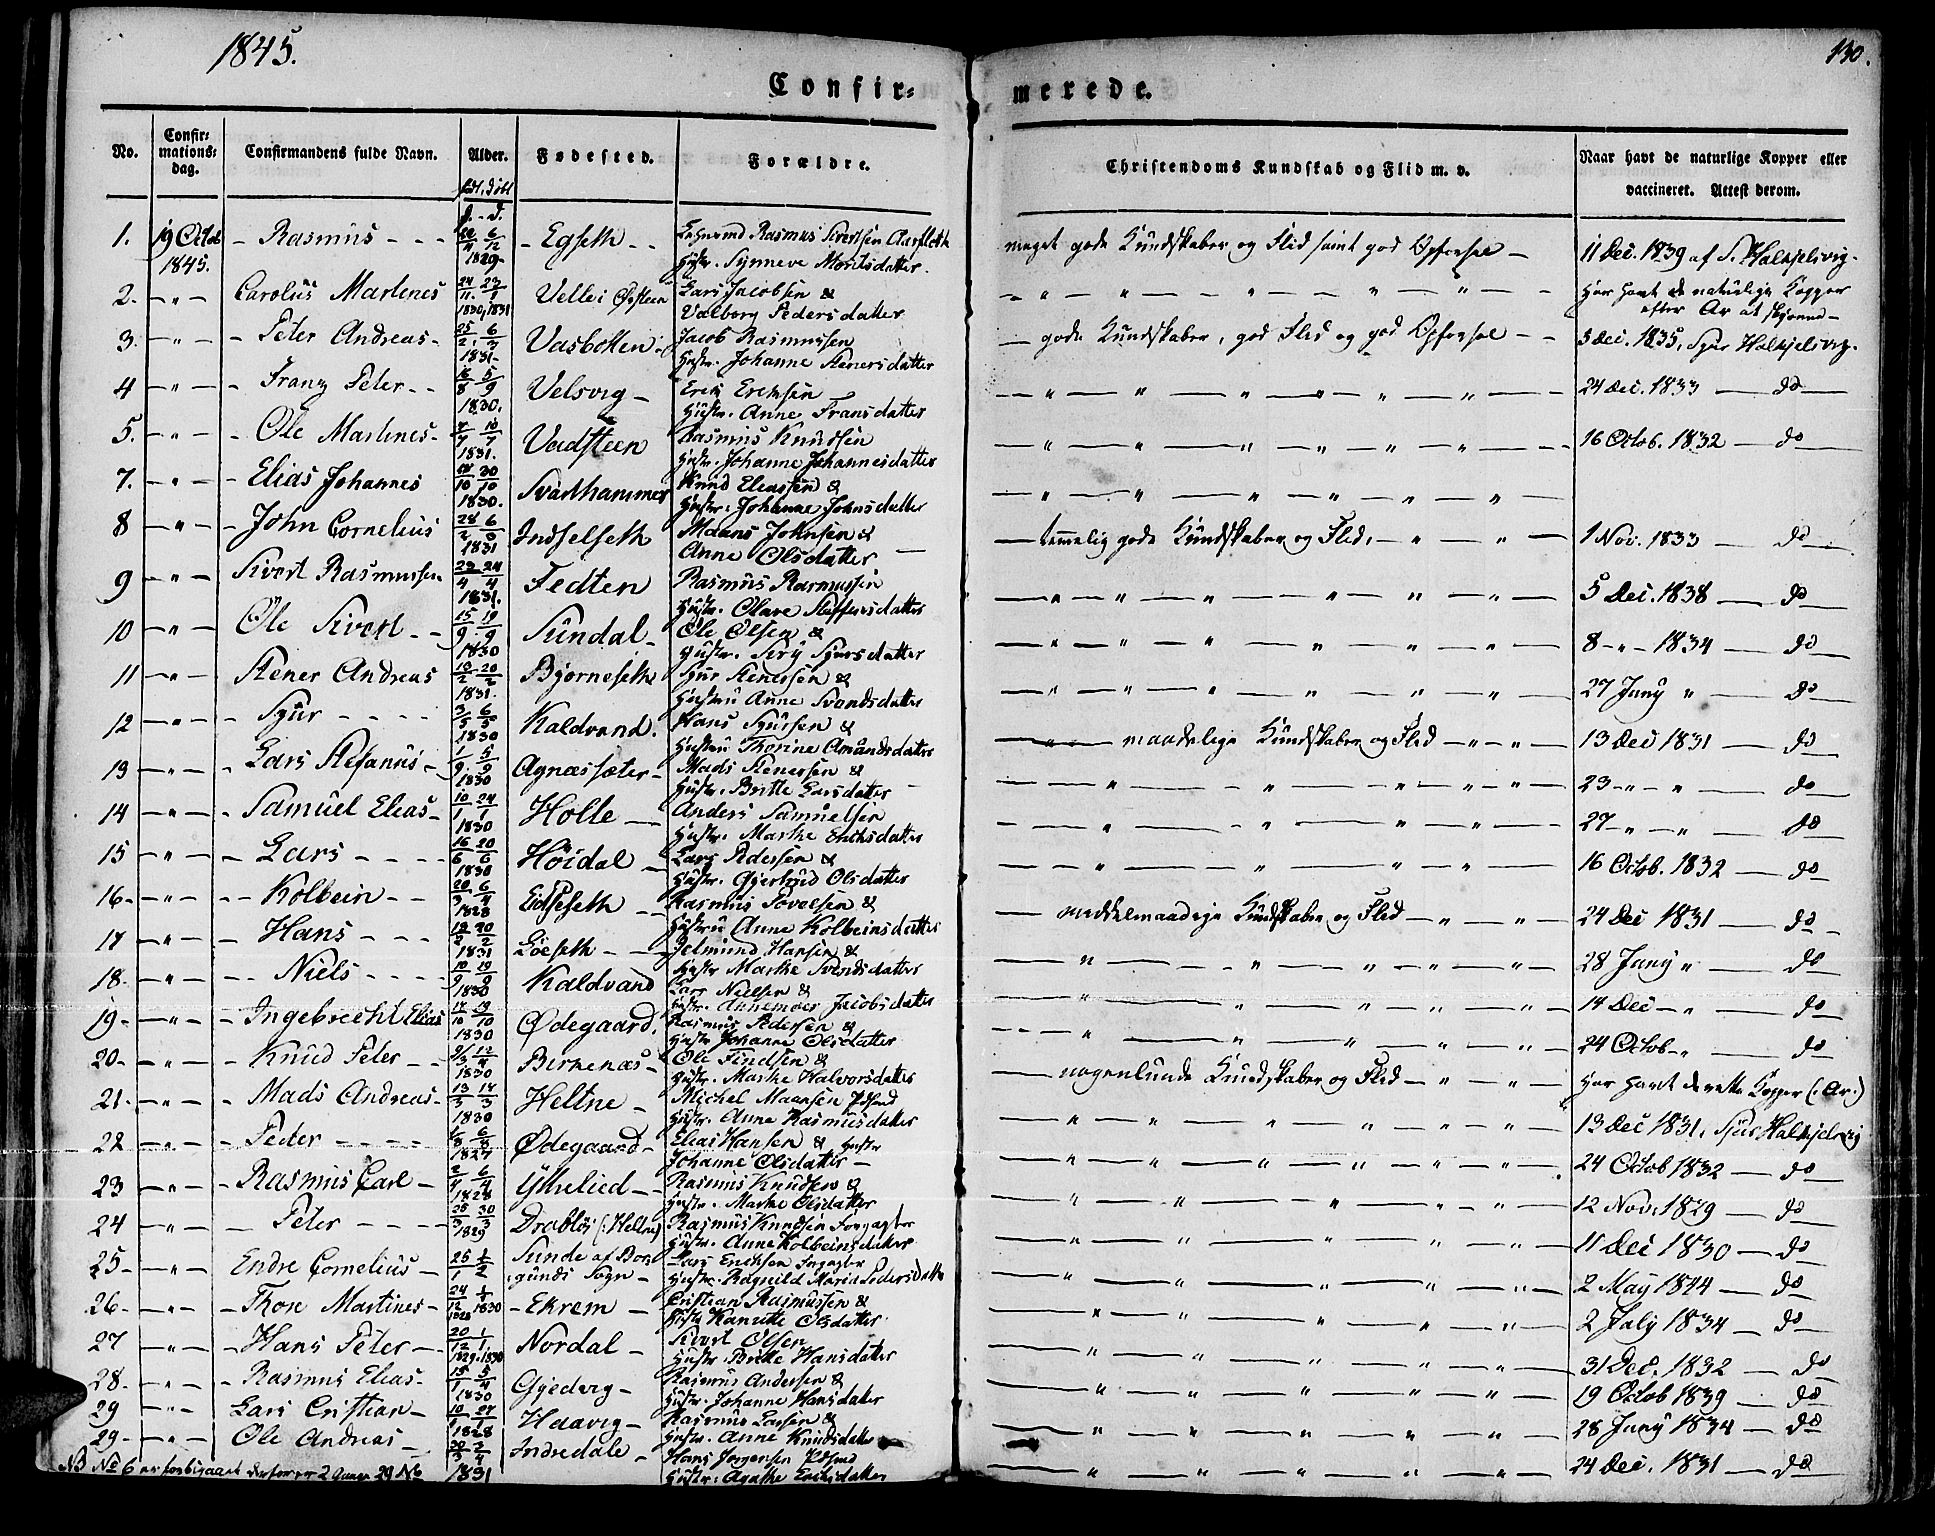 1845.
130.
Confir=
merede.
No.
Confir=
mations=
dag.
Confirmandens fulde Navn.
Alder.
Fødested.
Forældre.
Christendoms Kundskab og Flid m. v.
Naar havt de naturlige Kopper eller
vaccineret. Attest derom.
født. Døbt
1. 19 Octob 1845. - Rasmus - - - 1829 - Egseth - - Rasmus Sivertsen Aarfloth
Hustr. Synneve Moritsdatter.
meget gode Kundskaber og Flid samt god Opførsel - 11 Dec. 1839 af S. Halkjelsvig.
2. - " - Carolus Martenes 24/11 23/1 1830, 1831 Lars Jacobsen &
Valborg Pedersdatter
Har havt de naturlige Kopper
efter Ar at skjønne -
3. - " - - Peter Andreas - 25/2 6/3 1831 Vasbotten Jacob Rasmussen
Hustr. Johanne Stenersdatter
- gode Kundskaber, god Flid og god Opførsel - - 3 Dec. 1835, Sjur Halkjelsvig.
4 - " - - Franz Peter - - 16/8 5/9 1830. Velsvig - Erik Ericksen
Hustr. Anne Fransdatter
24 Dec. 1833 - do
5. - " - - Ole Martenes - 1831. Vadsteen Rasmus Knudsen
Hustr. Johanne Johannesdatter
16 Octob. 1832 - do
7. - " - - Elias Johannes 1830. Svarthammer Knud Eleassen &
Hustr. Johanne Johnsdatter
8 - " - - John Cornelius 1831 Indselseth Maans Johnsen &
Anne Olsdatter -
- temmelig gode Kundskaber og Flid, - " - " - 1 Nov. 1833 - do
9 - " - Sivert Rasmussen 23/4 24/4 1831. Fedten Rasmus Rasmussen
Hustr. Olave Steffensdatter
5 Dec. 1838 - do
10 - " - Ole Sivert - - 15/9 19/9 1830 Sundal - Ole Olsen &
Hustr. Siri Sjursdatter
8 - " - 1834 - do
11 - " - Stener Andreas 1831. Bjørneseth Sjur Stenersen &
Hustru Anne Svendsdatter
27 Juny " - do
12 - " - - Sjur - - - - 3/5 6/5 1830 Kaldvand. Hans Sjursen &
Hustru Thorine Amundsdatter
maadelige Kundskaber og Flid - " - " - 13 Dec 1831 - do
13 - " - - Lars Stefanus - 1/9 5/9 1830 Agnæssæter - Mads Stenersen &
Hustr. Britte Larsdatter
23 - " - " - do
14 - " - - Samuel Eleas - 10/1 24/1 1830 Holle - Anders Samuelsen
Hustr. Marthe Ericksdatter
27 - " - " - do
15 - " - - Lars - - - - 16/6 20/6 1830 Høidal - Lars Pedersen &
Hustr. Gjertrud Olsdatter
16 Octob. 1832 - do
16 - " - - Kolbein - - 20/3 6/4 1828 Eidseseth - Rasmus Povelsen &
Hustru Anne Kolbeinsdatter
- middelmaadige Kundskaber og Flid - " - " - 24 Dec 1831 - do
17 - " - - Hans - - - 1831 Løeseth - - Jelmund Hansen &
Hustr Marthe Svendsdatter
28 Juny " - do
18. - " - - - Niels - - - 1830 Kaldvand Lars Nielsen &
Hustr. Annemoer Jacobsdatter
14 Dec - " - do
19 - " - - Ingebrecht Elias 1830 Ødegaard. Rasmus Pedersen &
Hustr Johanne Olsdatter
24 Octob - " - do
20 - " - - Knud Peter - - 1830 Birkenæs - Ole Findsen &
Hustr. Marthe Halvorsdatter
- nogenlunde Kundskaber og Flid - " - " - Har havt de rette Kopper (: Ar:)
21 - " - - Mads Andreas - 1830 Heltne - Michel Maansen
Hustr. Anne Rasmusdatter
13 Dec 1831, Sjur Halkjelsvig
22 - " - - Peder - - - - 1827 Ødegaard - Elias Hansen & Hustr
Johanne Olsdatter -
24 Octob 1832 - do
23 - " - - Rasmus Carl - 1828 Yttrelied - - Rasmus Knudsen &
Hustr. Marthe Olsdatter
12 Nov. 1829 - do
24 - " - - Peter - - - - 25/3 30/3 1829 Drabløs (: Heltne) Rasmus Knudsen Forpagter
Hustr. Anne Kolbeinsdatter
11 Dec 1830 - do
25 - " - Endre Cornelius - Sunde af Bor=
gunds Sogn - Lars Ericksen
Hustr. Ragnild Maria Pedersdatter
2 May 1844 - do
26 - " - - Thore Martines - 1830 - Ekrem - Cristian Rasmussen &
Hustr Kanutte Olsdatter
2 July 1834 - do
27 - " - - Hans Peter - - 20/12 1/1 1829. 1830 Nordal - Sivert Olsen
Hustr. Britte Hansdatter
31 Dec. 1832 - do
28 - " - - Rasmus Elias - 1830 Gjedvig - Rasmus Andersen &
Hustr. Johanne Hansdatter
19 Octob 1839 - do
29 - " - Lars Cristian - 1828 Haavig - Rasmus Larsen &
Hustr. Anne Knudsdatter
28 Juny 1834 - do
29 - " - Ole Andreas - 1831 Indredale - Hans Jørgensen
Hustr. Agathe Ericksdatter
24 Dec. 1831 - do
NB No 6 er forbigaaet derfor er 2 Gange 29 No